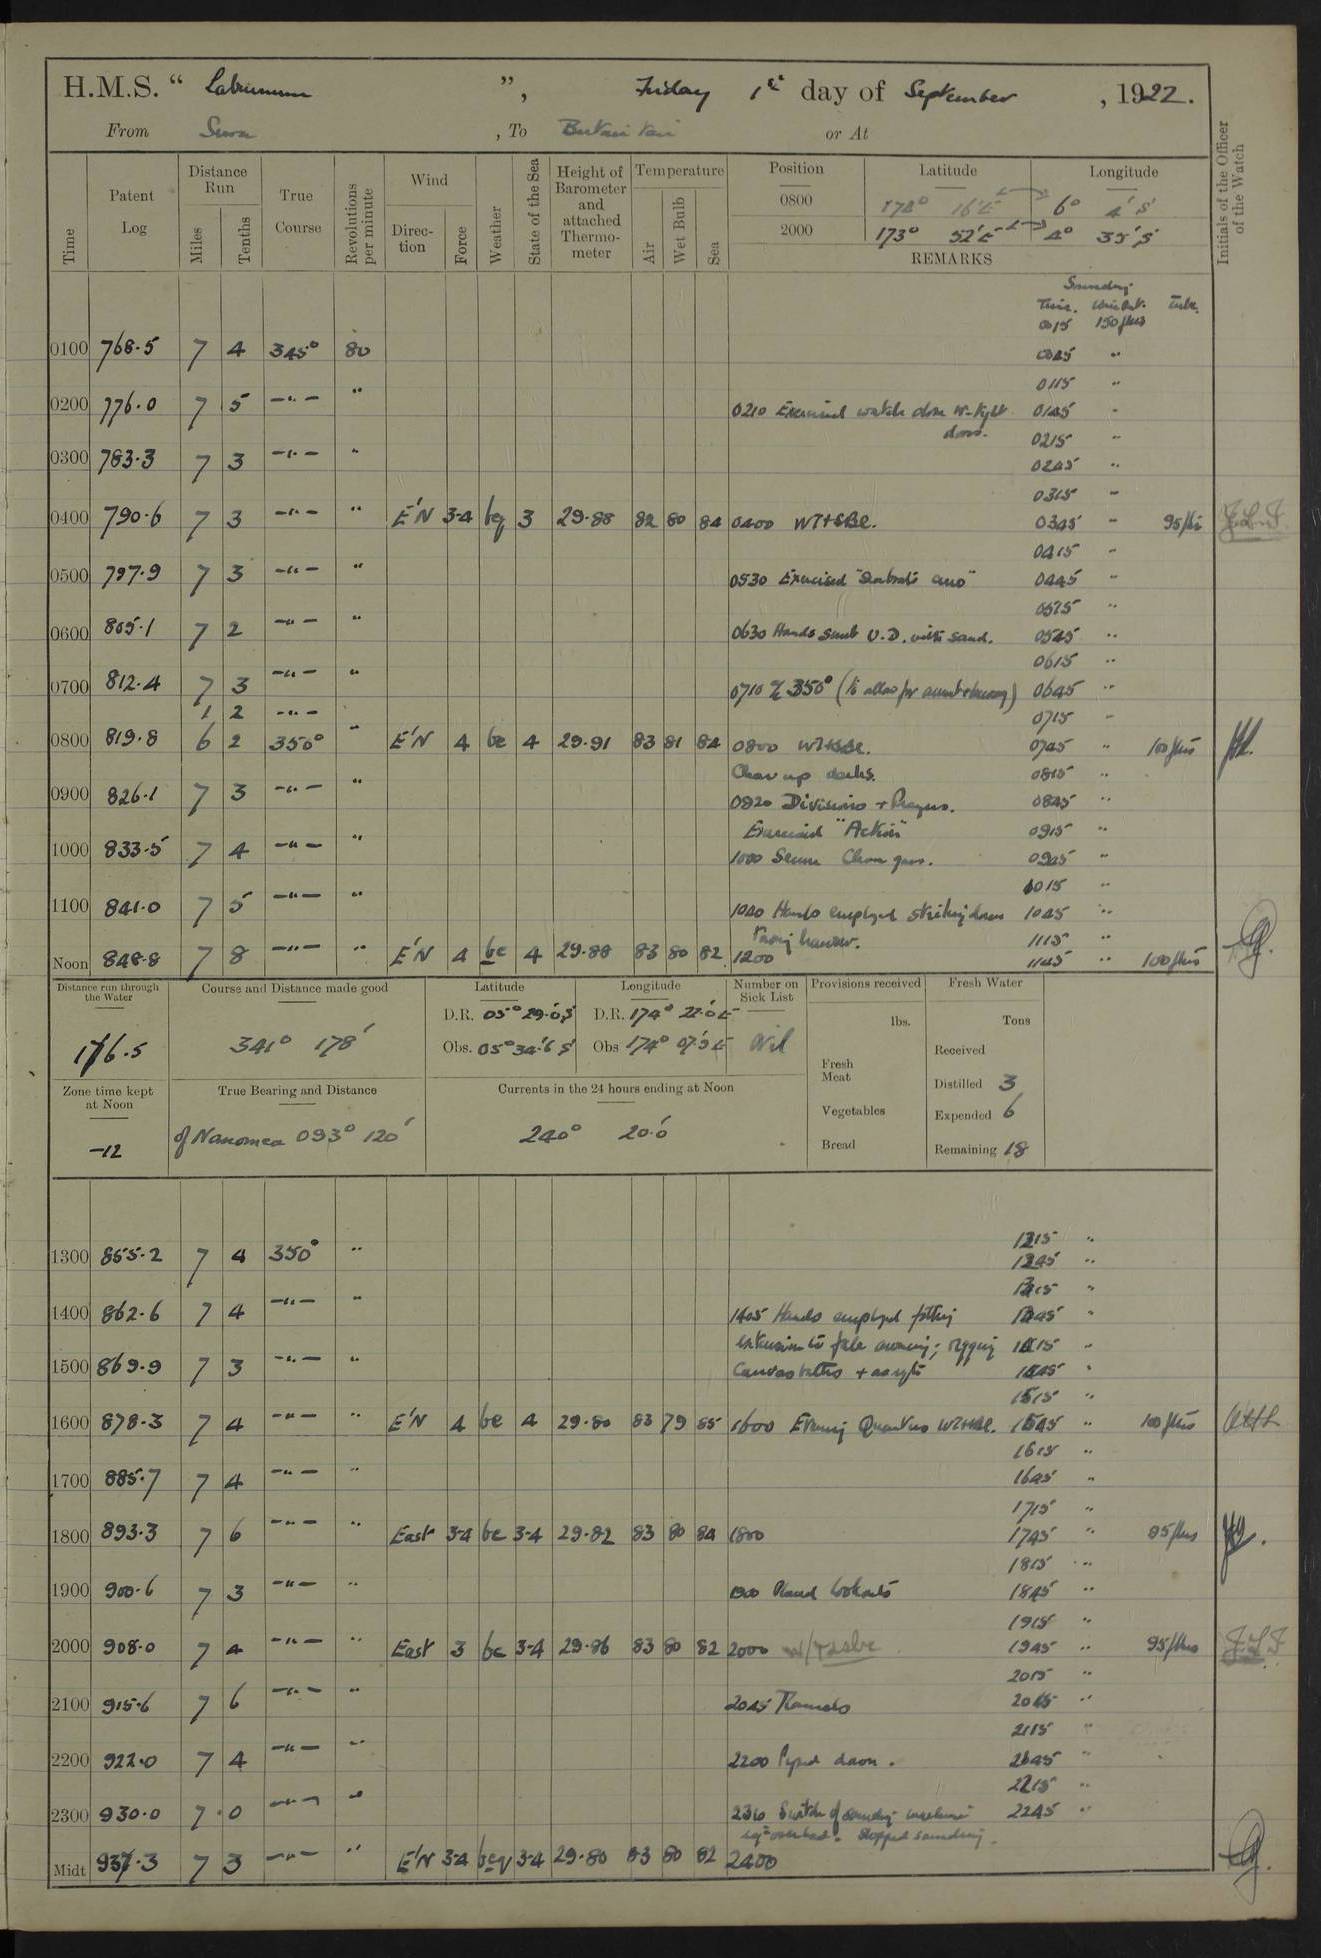 H.M.S. “ Laburnum ”, Friday 1st day of September , 1922.
From Suva , To Butaritari or At
Time Patent Log Distance Run Miles Tenths True Course Revolutions per minute Wind Direction Force Weather State of the Sea Height of Barometer and attached Thermometer Temperature Air Wet Bulb Sea Position Latitude Longitude Initials of the Officer of the Watch
0800 174° 16'E 6° 4'S
2000 173° 52'E 4° 35'S
REMARKS
Sounding
Time. Tube.
0015 150 fms
0100 768.5 7 4 345° 80 0045 "
0115 "
0200 776.0 7 5 —"— " 0210 Exercised watch close W-tight doors. 0145 "
0215 "
0300 783.3 7 3 —"— " 0245 "
0315 "
0400 790.6 7 3 —"— " E'N 3-4 bcq 3 29.88 82 80 84 0400 WT+SBC. 0345 " 95 fms
0415 "
0500 797.9 7 3 —"— " 0530 Exercised 0445 "
0515 "
0600 805.1 7 2 —"— " 0630 Hands scrub U.D. with sand. 0545 "
0615 "
0700 812.4 7 3 —"— " 0710 350° (to allow for current) 0645 "
1 2 —"— 0715 "
0800 819.8 6 2 350° " E'N 4 bc 4 29.91 83 81 84 0800 WT+SBC. 0745 " 100 fms
Clear up decks. 0815 "
0900 826.1 7 3 —"— " 0920 Divisions + Prayers. 0845 "
Exercised "Action" 0915 "
1000 833.5 7 4 —"— " 1000 Secure Clean guns. 0945 "
1015 "
1100 841.0 7 5 —"— " 1040 Hands employed striking down 1045 "
hawser. 1115 "
Noon 848.8 7 8 —"— " E'N 4 bc 4 29.88 83 80 82 1200 1145 " 100 fms
Distance run through the Water Course and Distance made good Latitude Longitude Number on Sick List Provisions received Fresh Water
D.R. 05° 29.0 S D.R. 174° 22.0 E lbs. Tons
176.5 341° 178' Obs. 05° 34.6 S Obs 174° 07.5 E Nil Received
Fresh Meat
Zone time kept at Noon True Bearing and Distance Currents in the 24 hours ending at Noon Distilled 3
Vegetables Expended 6
–12 of Nanomea 093° 120' 240° 20.0' Bread Remaining 18
1215 "
1300 855.2 7 4 350° " 1245 "
1315 "
1400 862.6 7 4 —"— " 1405 Hands employed fitting 1345 "
awning; rigging 1415 "
1500 869.9 7 3 —"— " Canvas baths 1445 "
1515 "
1600 878.3 7 4 —"— " E'N 4 bc 4 29.80 83 79 85 1600 Evening Quarters WT+SBC. 1545 " 100 fms
1615 "
1700 885.7 7 4 —"— " 1645 "
1715 "
1800 893.3 7 6 —"— " East 3-4 bc 3-4 29.82 83 80 84 1800 1745 " 95 fms
1815 "
1900 900.6 7 3 —"— " 1900 Placed lookouts 1845 "
1915 "
2000 908.0 7 4 —"— " East 3 bc 3-4 29.86 83 80 82 2000 1945 " 95 fms
2015 "
2100 915.6 7 6 —"— " 2045 Rounds 2045 "
2115 "
2200 922.0 7 4 —"— " 2200 Piped down. 2145 "
2215 "
2300 930.0 7 0 —"— " 2310 Switch of sounding machine 2245 "
Stopped sounding.
Midt 937.3 7 3 —"— " E'N 3-4 bcq 3-4 29.80 83 80 82 2400